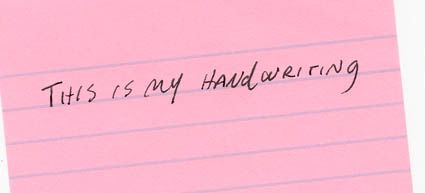 THIS IS MY HANDWRITING